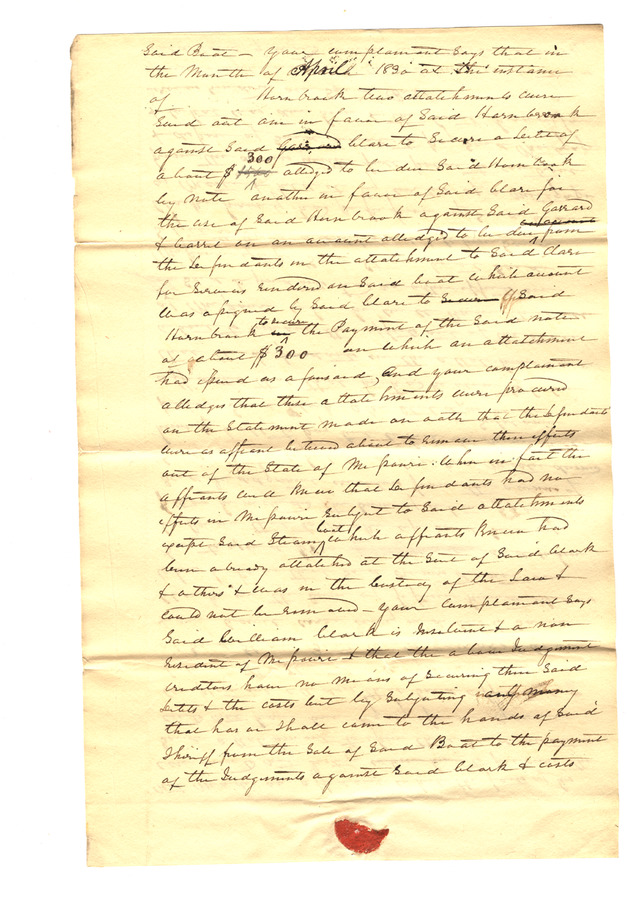 Said Boat – your complainant says that in
the Month of April 1830 at the instance
of Hornbrook two attatchments were
Sued out one in favor of Said Hornbrook
against Said Garrard Clare to Secure a Debt of
about $300 alledged to be due Said Hornbrook
by note another in favor of Said Clare for
the use of Said Hornbrook against Said Garrard
& on an account alledged to be due from
the Defendants in the attatchment to Said Clare
for Services rendered on Said boat which account
was assigned by Said Clare to Secure Said
Hornbrook to secure in the Payment of the Said note
of about $300 on which an attatchment
had ipsued as aforesaid, and your complainant
alledges that these attatchments were procured
on the Statement made on oath that the Defendants
were as affiant believed about to remove their effects
out of the State of Mipouri: When in fact the
affiants well knew that Defendants had no
effects in Mipouri Subject to Said attatchments
except Said Steam boat which affiants knew had
been already attatched at the Suit of Said Clark
& others & was in the Custody of the Law &
could not be removed – your Complainant Says
Said William Clark is Insolvent & a non
Resident of Mipouri & that the above Judgment
creditors have no means of Securing their Said
Debts & the costs but by Subjecting any money
that has or Shall come to the hands of Said
Sheriff from the Sale of Said Boat to the payment
of the Judgements against Said Clark & costs